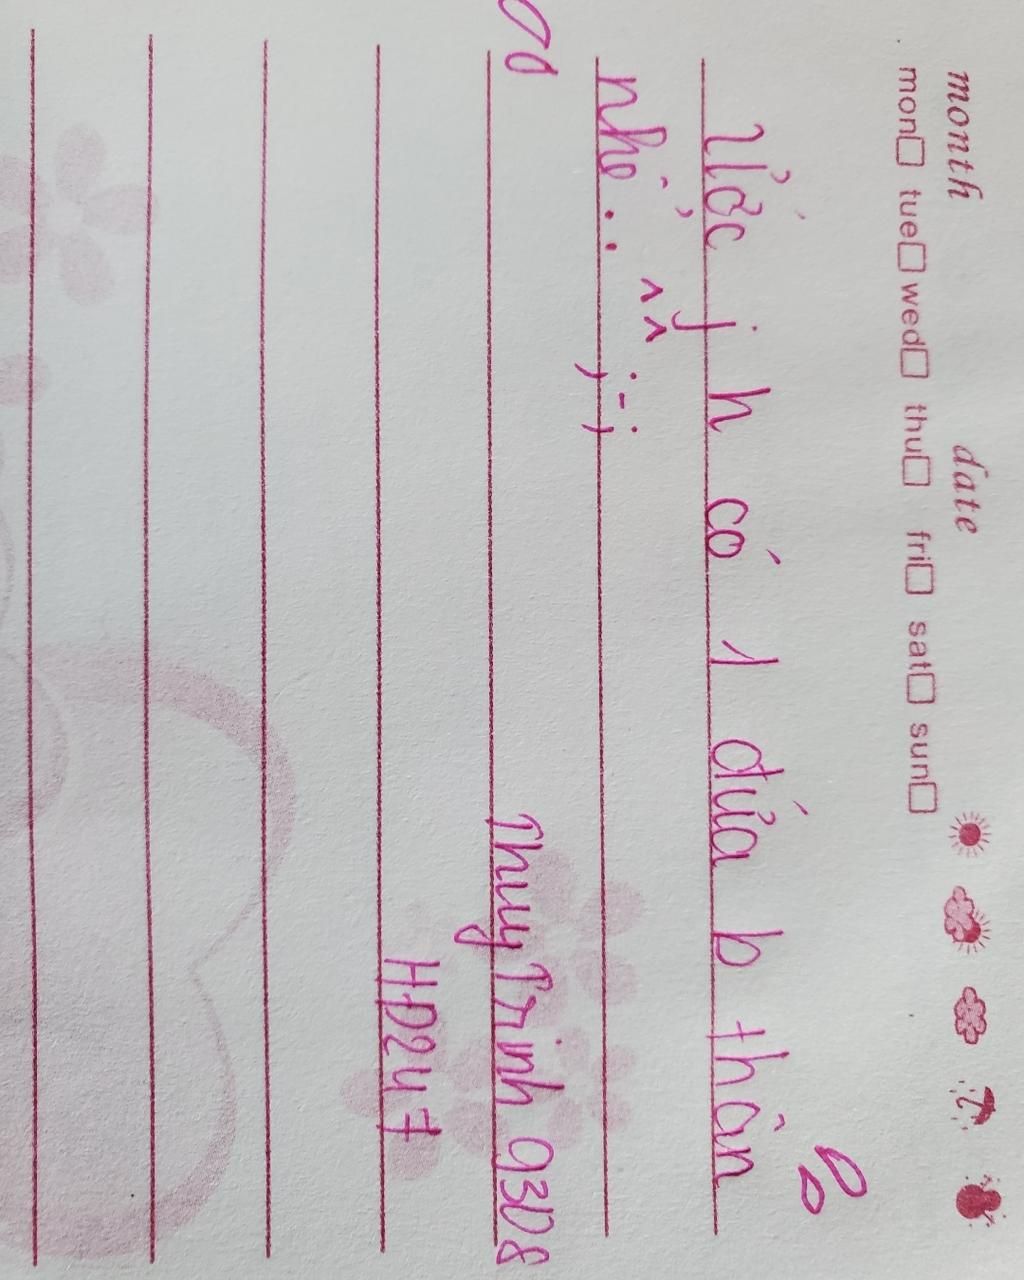 month date
mon tue wed thu fri sat sun
Ước j h có 1 đứa b thân
nhỉ.. ^^ ;-;
Thuy Trinh 0308
HD247